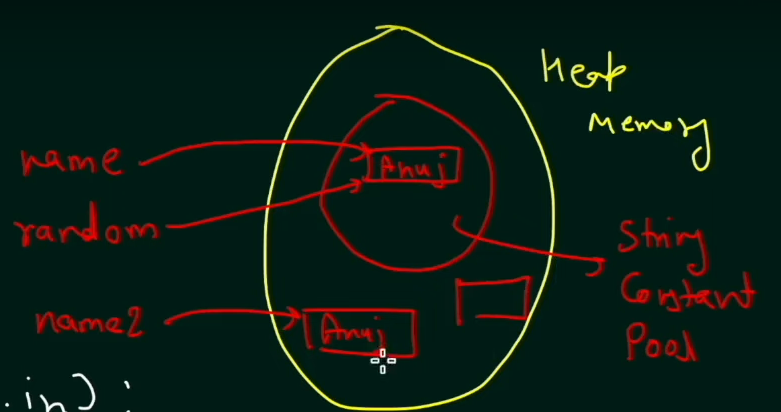 Heap
Memory
name
Anuj
random
String
Constant
Pool
name2
Anuj
.in);